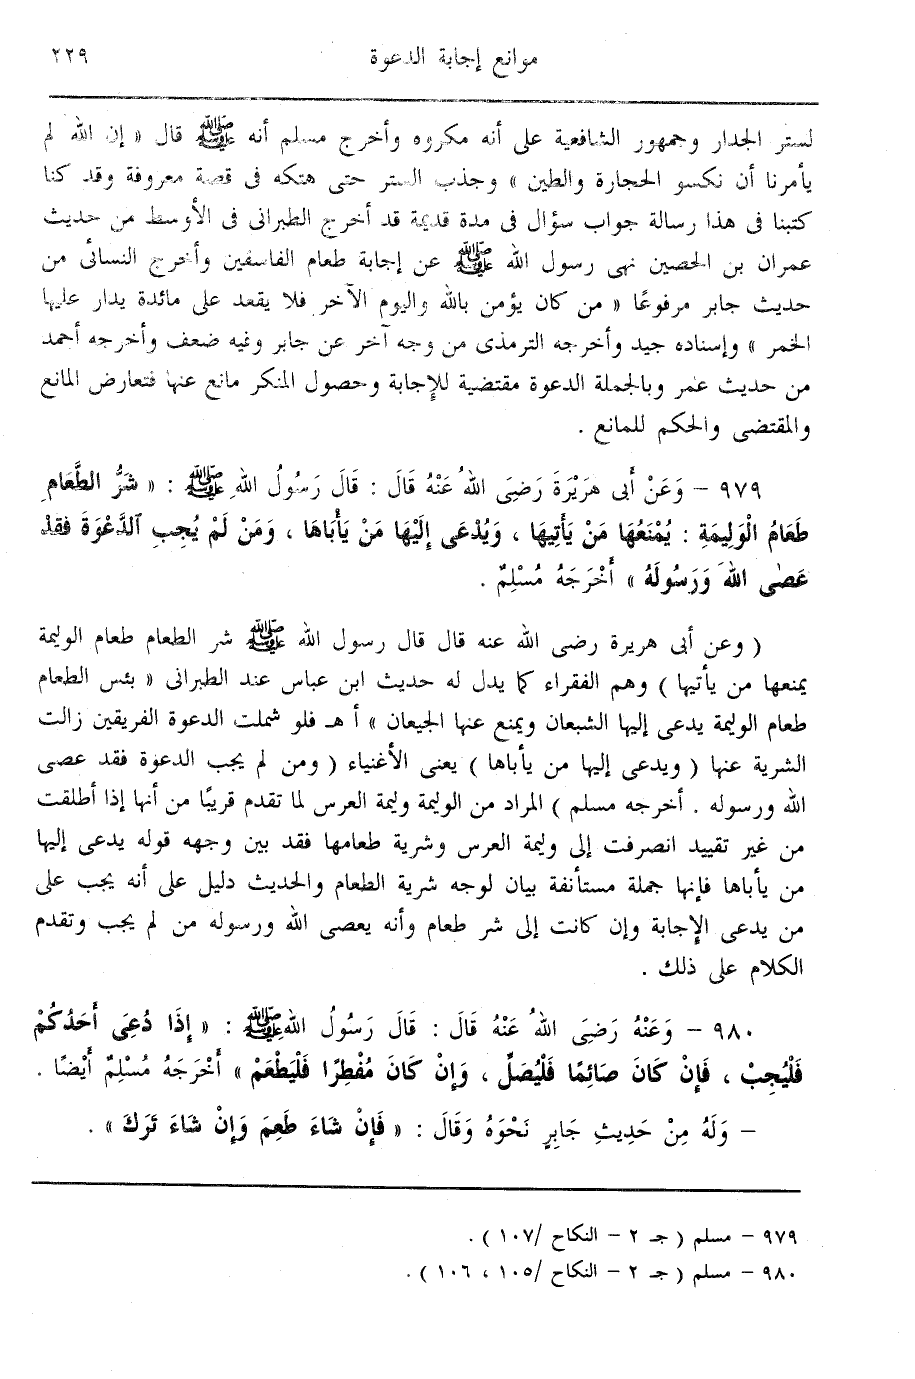 موانع إجابة الدعوة ٢٢٩
لستر الجدار وجمهور الشافعية على أنه مكروه وأخرج مسلم أنه ﷺ قال « إن الله لم
يأمرنا أن نكسو الحجارة والطين » وجذب الستر حتى هتكه فى قصة معروفة وقد كنا
كتبنا فى هذا رسالة جواب سؤال فى مدة قديمة قد أخرج الطبرانى فى الأوسط من حديث
عمران بن الحصين نهى رسول الله ﷺ عن إجابة طعام الفاسقين وأخرج النسائى من
حديث جابر مرفوعًا « من كان يؤمن بالله واليوم الآخر فلا يقعد على مائدة يدار عليها
الخمر » وإسناده جيد وأخرجه الترمذى من وجه آخر عن جابر وفيه ضعف وأخرجه أحمد
من حديث عمر وبالجملة الدعوة مقتضية للإجابة وحصول المنكر مانع عنها فتعارض المانع
والمقتضى والحكم للمانع .
٩٧٩ – وَعَنْ أَبى هرَيْرَةَ رَضِىَ اللهُ عَنْهُ قَالَ : قَالَ رَسُولُ اللهِ ﷺ : « شَرُّ الطَّعَامِ
طَعَامُ الْوَلِيمَةِ : يُمْنَعُهَا مَنْ يَأْتِيهَا ، وَيُدْعَى إِلَيْهَا مَنْ يَأْبَاهَا ، وَمَنْ لَمْ يُجِبِ الدَّعْوَةَ فَقَدْ
عَصَى اللهَ وَرَسُولَهُ » أَخْرَجَهُ مُسْلِمٌ .
( وعن أبى هريرة رضى الله عنه قال قال رسول الله ﷺ شر الطعام طعام الوليمة
يمنعها من يأتيها ) وهم الفقراء كما يدل له حديث ابن عباس عند الطبرانى « بئس الطعام
طعام الوليمة يدعى إليها الشبعان ويمنع عنها الجيعان » أ هـ فلو شملت الدعوة الفريقين زالت
الشرية عنها ( ويدعى إليها من يأباها ) يعنى الأغنياء ( ومن لم يجب الدعوة فقد عصى
الله ورسوله . أخرجه مسلم ) المراد من الوليمة وليمة العرس لما تقدم قريبًا من أنها إذا أطلقت
من غير تقييد انصرفت إلى وليمة العرس وشرية طعامها فقد بين وجهه قوله يدعى إليها
من يأباها فإنها جملة مستأنفة بيان لوجه شرية الطعام والحديث دليل على أنه يجب على
من يدعى الإجابة وإن كانت إلى شر طعام وأنه يعصى الله ورسوله من لم يجب وتقدم
الكلام على ذلك .
٩٨٠ – وَعَنْهُ رَضِىَ اللهُ عَنْهُ قَالَ : قَالَ رَسُولُ اللهِ ﷺ : « إِذَا دُعِىَ أَحَدُكُمْ
فَلْيُجِبْ ، فَإِنْ كَانَ صَائِمًا فَلْيُصَلِّ ، وَإِنْ كَانَ مُفْطِرًا فَلْيَطْعَمْ » أَخْرَجَهُ مُسْلِمٌ أَيْضًا .
– وَلَهُ مِنْ حَدِيثِ جَابِرٍ نَحْوَهُ وَقَالَ : « فَإِنْ شَاءَ طَعِمَ وَإِنْ شَاءَ تَرَكَ » .
٩٧٩ – مسلم ( جـ ٢ – النكاح /١٠٧ ) .
٩٨٠ – مسلم ( جـ ٢ – النكاح /١٠٥ ، ١٠٦ ) .